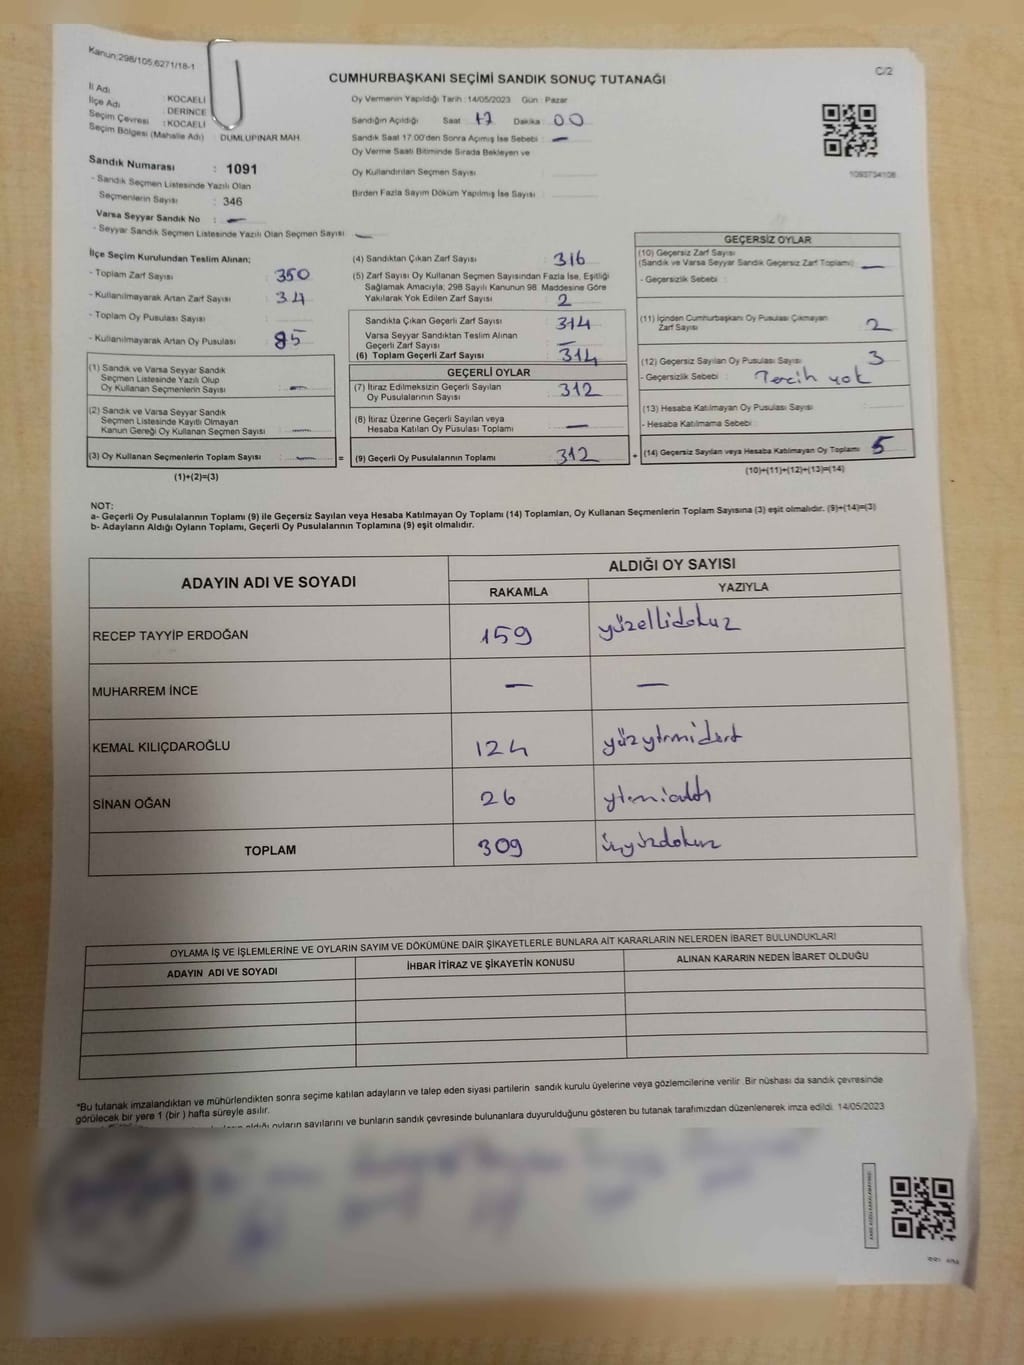 Kanun:298/105;6271/18-1
C/2
CUMHURBAŞKANI SEÇİMİ SANDIK SONUÇ TUTANAĞI
İl Adı : KOCAELİ
İlçe Adı : DERİNCE
Seçim Çevresi : KOCAELİ
Seçim Bölgesi (Mahalle Adı) : DUMLUPINAR MAH.
Sandık Numarası : 1091
- Sandık Seçmen Listesinde Yazılı Olan
Seçmenlerin Sayısı : 346
Varsa Seyyar Sandık No : —
- Seyyar Sandık Seçmen Listesinde Yazılı Olan Seçmen Sayısı : —
Oy Vermenin Yapıldığı Tarih : 14/05/2023 Gün : Pazar
Sandığın Açıldığı Saat 17 Dakika : 00
Sandık Saat 17.00'den Sonra Açımış İse Sebebi : —
Oy Verme Saati Bitiminde Sırada Bekleyen ve
Oy Kullandırılan Seçmen Sayısı :
Birden Fazla Sayım Döküm Yapılmış İse Sayısı :
1093734108
İlçe Seçim Kurulundan Teslim Alınan;
- Toplam Zarf Sayısı : 350
- Kullanılmayarak Artan Zarf Sayısı : 34
- Toplam Oy Pusulası Sayısı :
- Kullanılmayarak Artan Oy Pusulası : 85
(1) Sandık ve Varsa Seyyar Sandık
Seçmen Listesinde Yazılı Olup
Oy Kullanan Seçmenlerin Sayısı : —
(2) Sandık ve Varsa Seyyar Sandık
Seçmen Listesinde Kayıtlı Olmayan
Kanun Gereği Oy Kullanan Seçmen Sayısı : —
(3) Oy Kullanan Seçmenlerin Toplam Sayısı : — =
(1)+(2)=(3)
(4) Sandıktan Çıkan Zarf Sayısı : 316
(5) Zarf Sayısı Oy Kullanan Seçmen Sayısından Fazla İse, Eşitliği
Sağlamak Amacıyla; 298 Sayılı Kanunun 98. Maddesine Göre
Yakılarak Yok Edilen Zarf Sayısı : 2
Sandıkta Çıkan Geçerli Zarf Sayısı : 314
Varsa Seyyar Sandıktan Teslim Alınan
Geçerli Zarf Sayısı : —
(6) Toplam Geçerli Zarf Sayısı : 314
GEÇERLİ OYLAR
(7) İtiraz Edilmeksizin Geçerli Sayılan
Oy Pusulalarının Sayısı : 312
(8) İtiraz Üzerine Geçerli Sayılan veya
Hesaba Katılan Oy Pusulası Toplamı : —
(9) Geçerli Oy Pusulalarının Toplamı : 312 +
GEÇERSİZ OYLAR
(10) Geçersiz Zarf Sayısı
(Sandık ve Varsa Seyyar Sandık Geçersiz Zarf Toplamı) : —
- Geçersizlik Sebebi :
(11) İçinden Cumhurbaşkanı Oy Pusulası Çıkmayan
Zarf Sayısı : 2
(12) Geçersiz Sayılan Oy Pusulası Sayısı : 3
- Geçersizlik Sebebi : Tercih yok
(13) Hesaba Katılmayan Oy Pusulası Sayısı :
- Hesaba Katılmama Sebebi :
(14) Geçersiz Sayılan veya Hesaba Katılmayan Oy Toplamı : 5
(10)+(11)+(12)+(13)=(14)
NOT:
a- Geçerli Oy Pusulalarının Toplamı (9) ile Geçersiz Sayılan veya Hesaba Katılmayan Oy Toplamı (14) Toplamları, Oy Kullanan Seçmenlerin Toplam Sayısına (3) eşit olmalıdır. (9)+(14)=(3)
b- Adayların Aldığı Oyların Toplamı, Geçerli Oy Pusulalarının Toplamına (9) eşit olmalıdır.
ADAYIN ADI VE SOYADI ALDIĞI OY SAYISI
RAKAMLA YAZIYLA
RECEP TAYYİP ERDOĞAN 159 yüzellidokuz
MUHARREM İNCE — —
KEMAL KILIÇDAROĞLU 124 yüzyirmidört
SİNAN OĞAN 26 yirmialtı
TOPLAM 309 üçyüzdokuz
OYLAMA İŞ VE İŞLEMLERİNE VE OYLARIN SAYIM VE DÖKÜMÜNE DAİR ŞİKAYETLERLE BUNLARA AİT KARARLARIN NELERDEN İBARET BULUNDUKLARI
ADAYIN ADI VE SOYADI İHBAR İTİRAZ VE ŞİKAYETİN KONUSU ALINAN KARARIN NEDEN İBARET OLDUĞU
*Bu tutanak imzalandıktan ve mühürlendikten sonra seçime katılan adayların ve talep eden siyasi partilerin sandık kurulu üyelerine veya gözlemcilerine verilir. Bir nüshası da sandık çevresinde
görülecek bir yere 1 (bir) hafta süreyle asılır.
aldığı oyların sayılarını ve bunların sandık çevresinde bulunanlara duyurulduğunu gösteren bu tutanak tarafımızdan düzenlenerek imza edildi. 14/05/2023